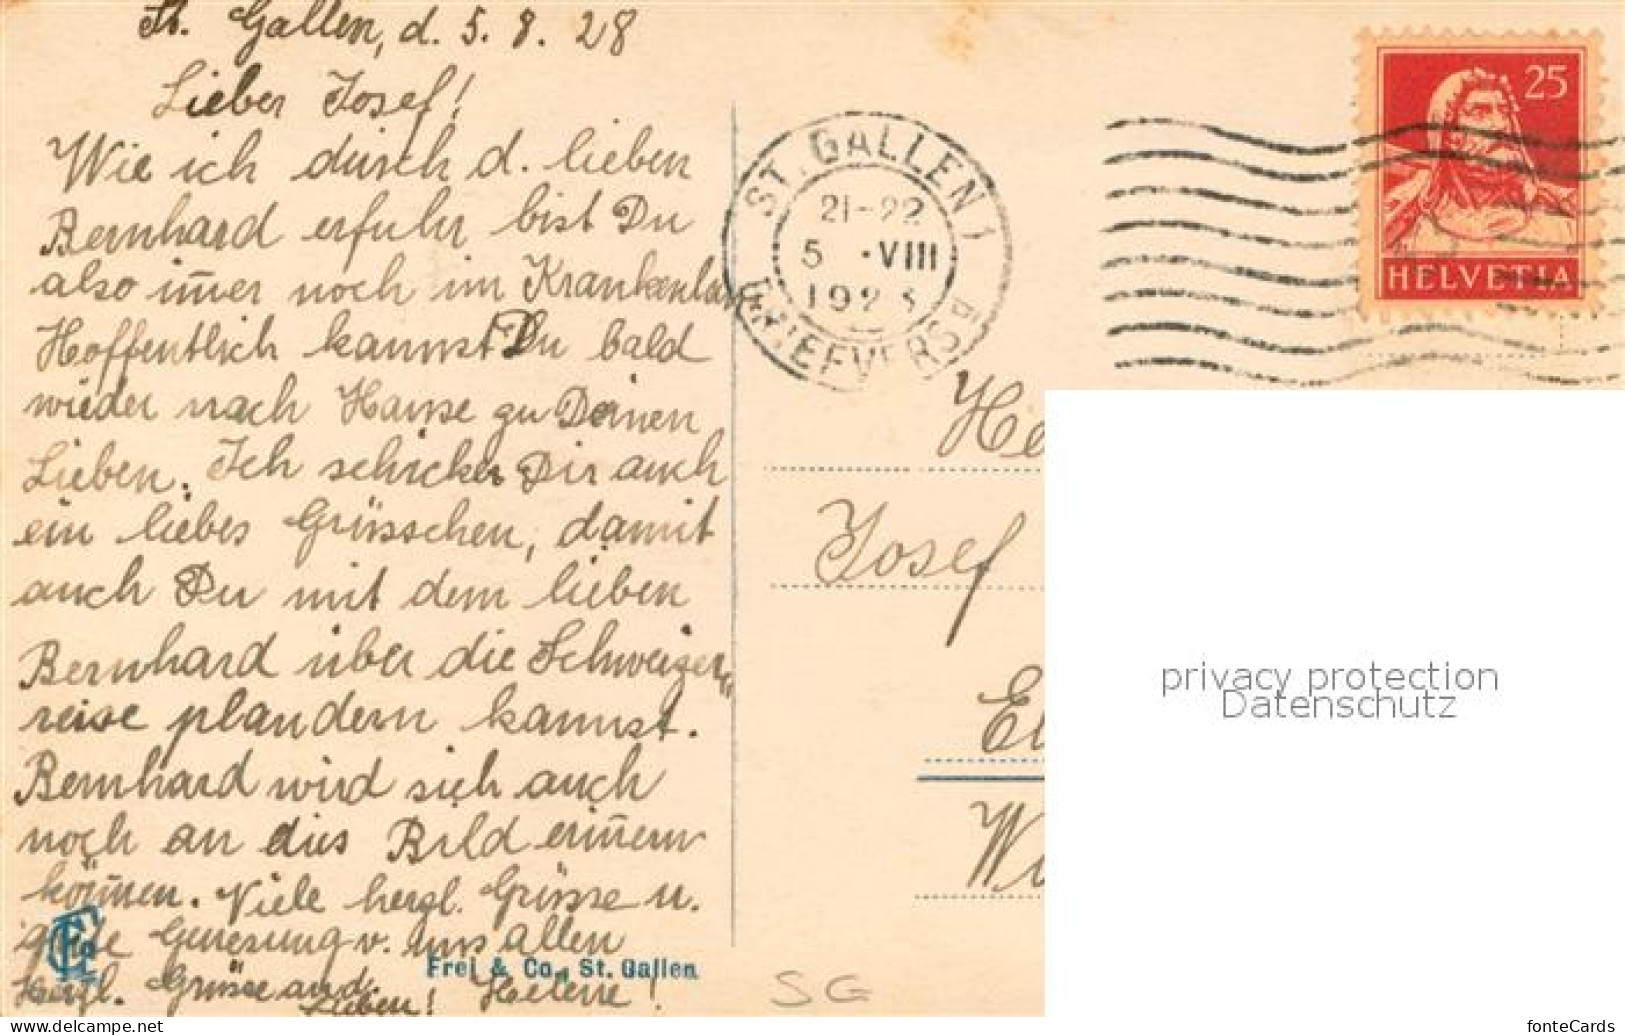 St. Gallen, d. 5. 8. 28
Lieber Josef!
Wie ich durch d. lieben
Bernhard erfuhr bist Du
also im̄er noch im Krankenhaus
Hoffentlich kannst Du bald
wieder nach Hause zu Deinen
Lieben. Ich schicke Dir auch
ein liebes Grüsschen, damit
auch Du mit dem lieben
Bernhard über die Schweizer„
reise plaudern kannst.
Bernhard wird sich auch
noch an dies Bild erin̄ern
kön̄en. Viele herzl. Grüsse u.
gute Genesung v. uns allen
Herzl. Grüsse an d.
Lieben! Helene!
Frei & Co., St. Gallen
SG
ST. GALLEN 1
21-22
5 ·VIII
1928
BRIEFVERS
25
HELVETIA
Josef
privacy protection
Datenschutz
www.delcampe.net
fonteCards